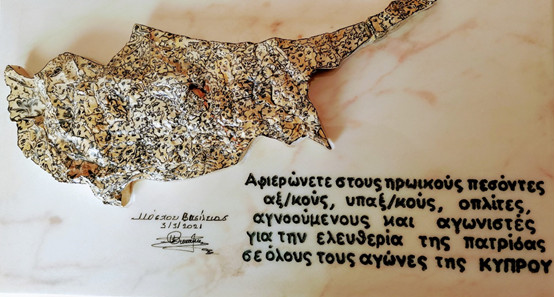 Αφιερώνετε στους ηρωικούς πεσόντες
αξ/κούς, υπαξ/κούς, οπλίτες,
αγνοούμενους και αγωνιστές
για την ελευθερία της πατρίδας
σε όλους τους αγώνες της ΚΥΠΡΟΥ